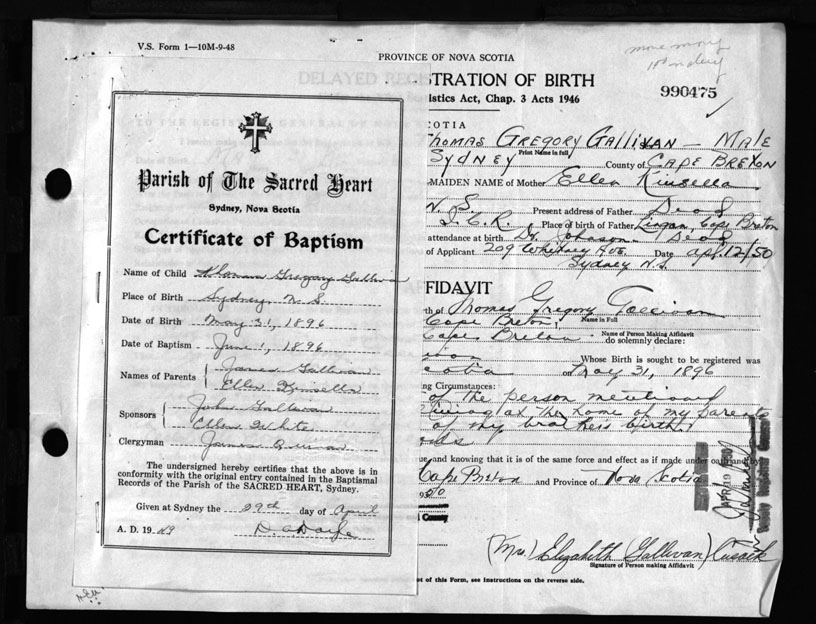 V.S. Form 1—10M-9-48
PROVINCE OF NOVA SCOTIA
DELAYED REGISTRATION OF BIRTH
istics Act, Chap. 3 Acts 1946
990475
COTIA
Thomas GREGORY GALLIVAN — MALE
Print Name in full
SYDNEY County of CAPE BRETON
MAIDEN NAME of Mother Ellen Kinsella
N. S. Present address of Father Dead
Place of birth of Father Lingan, Cape Breton
attendance at birth Dr. Johnson Dead
of Applicant 209 Whitney Ave. Date Apl. 12/50
Sydney N.S.
FFIDAVIT
th of Thomas Gregory Gallivan
Name in Full
Cape Breton
Name of Person Making Affidavit
Cape Breton do solemnly declare:
Whose Birth is sought to be registered was
cotia on May 31, 1896
ng Circumstances:
of the person mentioned
living at the home of my parents
of my brothers birth
ue and knowing that it is of the same force and effect as if made under oath and by
Cape Breton and Province of Nova Scotia
County
(Mrs.) Elizabeth (Gallivan) Cusack
Signature of Person making Affidavit
et of this Form, see Instructions on the reverse side.
Parish of The Sacred Heart
Sydney, Nova Scotia
Certificate of Baptism
Name of Child Thomas Gregory Gallivan
Place of Birth Sydney, N.S.
Date of Birth May 31, 1896
Date of Baptism June 1, 1896
Names of Parents James Gallivan
Ellen Kinsella
Sponsors John Gallivan
Ellen White
Clergyman James Quinan
The undersigned hereby certifies that the above is in
conformity with the original entry contained in the Baptismal
Records of the Parish of the SACRED HEART, Sydney.
Given at Sydney the 29th day of April
A. D. 1949